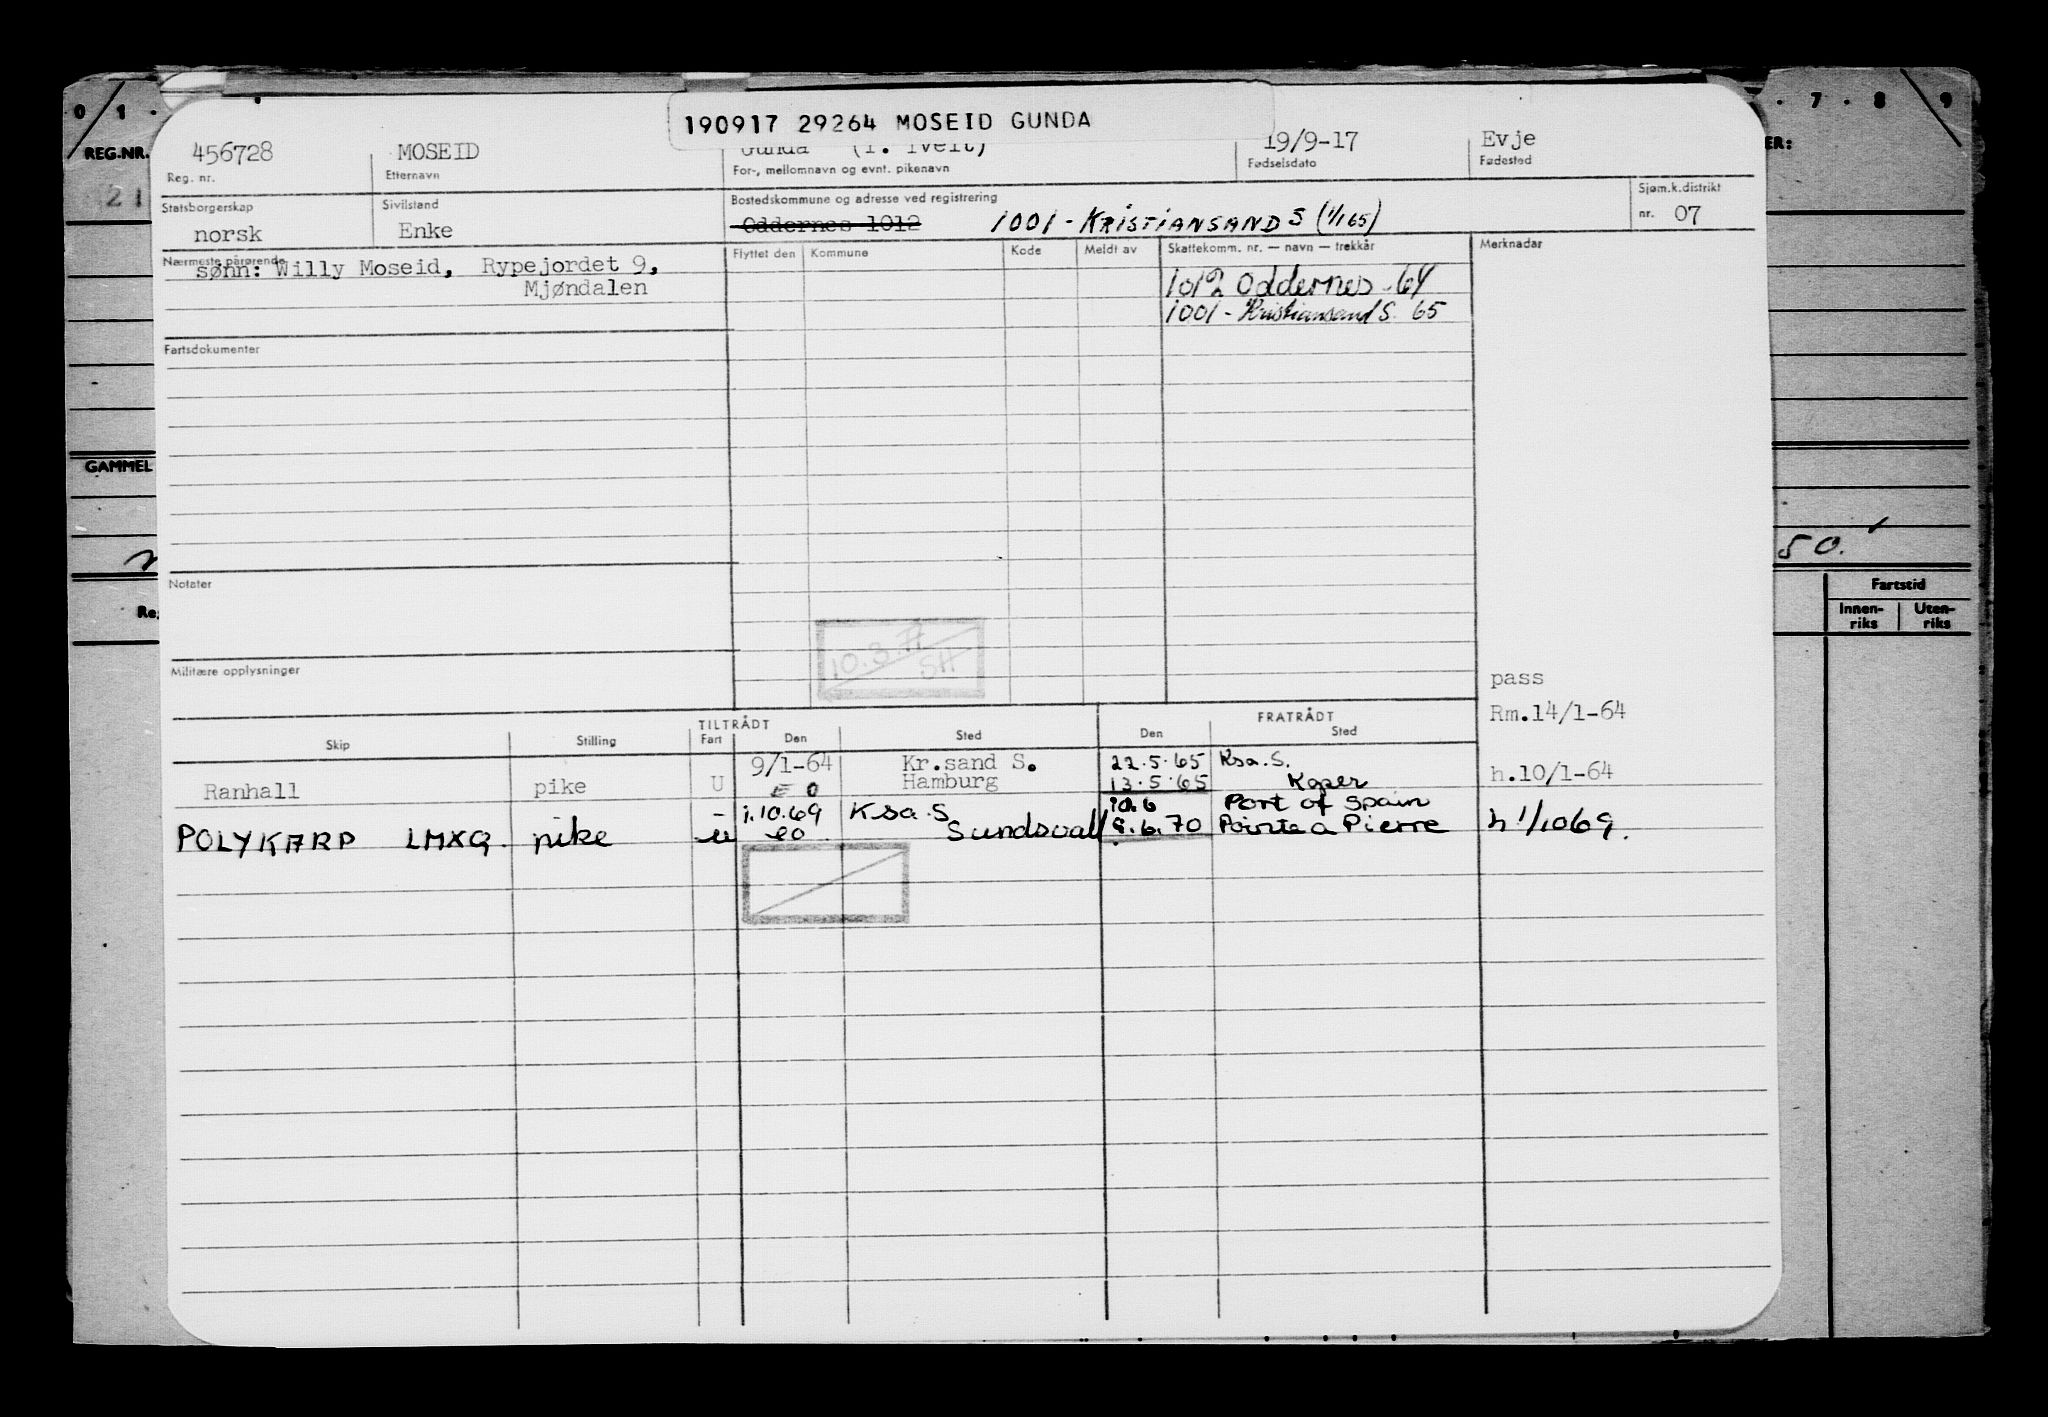 0 1 · · 7 · 8 · 9
190917 29264 MOSEID GUNDA
REG.NR. 456728 MOSEID Gunda (f. Tveit) 19/9-17 Evje ER:
Reg. nr. Etternavn For-, mellomnavn og evnt. pikenavn Fødselsdato Fødested
21
Statsborgerskap Sivilstand Bostedskommune og adresse ved registrering Sjøm.k.distrikt
norsk Enke Oddernes 1012 1001 - KRISTIANSAND S (1/1 65) nr. 07
Nærmeste pårørende Flyttet den Kommune Kode Meldt av Skattekomm. nr. — navn — trekkår Merknader
sønn: Willy Moseid, Rypejordet 9,
Mjøndalen
1012 Oddernes - 64
1001 - Kristiansand S. 65
Fartsdokumenter
GAMMEL
50.
Notater
Fartstid
Innen-riks Uten-riks
Re
10.3.77
SH
Militære opplysninger
pass
Rm.14/1-64
TILTRÅDT FRATRÅDT
Skip Stilling Fart Den Sted Den Sted
9/1-64 Kr.sand S. 22.5.65 Ksa.S.
Ranhall pike U E O Hamburg 13.5.65 Koper h.10/1-64
- 1.10.69 Ksa.S 10.6 Port of Spain
POLYKARP LMXG. pike u eo Sundsvall 9.6.70 Pointe a Pierre h 1/1069.